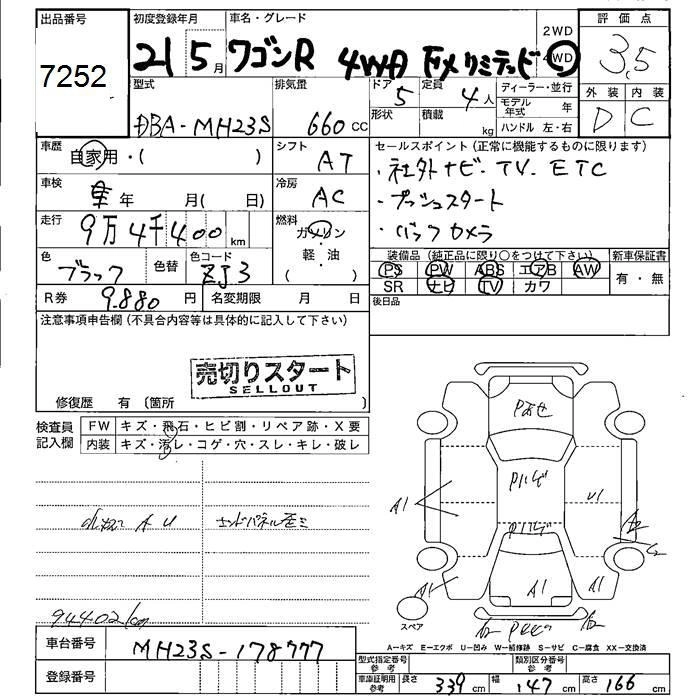 出品番号
7252
初度登録年月
21 5月
車名・グレード
ワゴンR 4WD FXリミテッド
2WD
4WD
評価点
3.5
外装 内装
D C
型式
DBA-MH23S
排気量
660 CC
ドア
5
形状
定員
4人
積載
kg
ディーラー・並行
モデル年式 年
ハンドル 左・右
車歴
自家用・( )
シフト
AT
車検
年 月( 日)
冷房
AC
走行
9万4千400 km
燃料
ガソリン
軽・油
( )
色
ブラック
色替
色コード
ZJ3
R券
9.880 円
名変期限 月 日
セールスポイント(正常に機能するものに限ります)
・社外ナビ・TV・ETC
・プッシュスタート
・バックカメラ
装備品(純正品に限り○をつけて下さい)
PS PW ABS エアB AW
SR ナビ TV カワ
新車保証書
有・無
後日品
注意事項申告欄(不具合内容等は具体的に記入して下さい)
売切りスタート
SELLOUT
修復歴 有〔箇所 〕
検査員記入欄
FW キズ・飛石・ヒビ割・リペア跡・X要
内装 キズ・汚レ・コゲ・穴・スレ・キレ・破レ
A U
エンドパネル歪ミ
94402km
A1
U1
A2
A1
A1
A1
スペア
A-キズ E-エクボ U-凹み W-補修跡 S-サビ C-腐食 XX-交換済
車台番号
MH23S-178777
登録番号
型式指定番号 参考
類別区分番号 参考
車庫証明用 参考
長さ 339
幅 147
高さ 166
cm